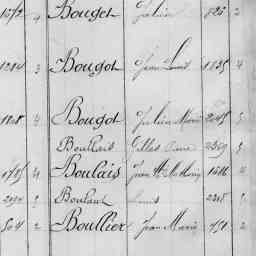 1572 4 Bouget Julien 825 2
1284 3 Bougot Jean Louis 1135 4
1808 4 Bougot Julien Marie 2045 5
Boullais Gilles 2369 5
1785 4 Boulais Jean 1616 4
2 Boulant Louis 2215 5
504 2 Boullier Jean Marie 751 2